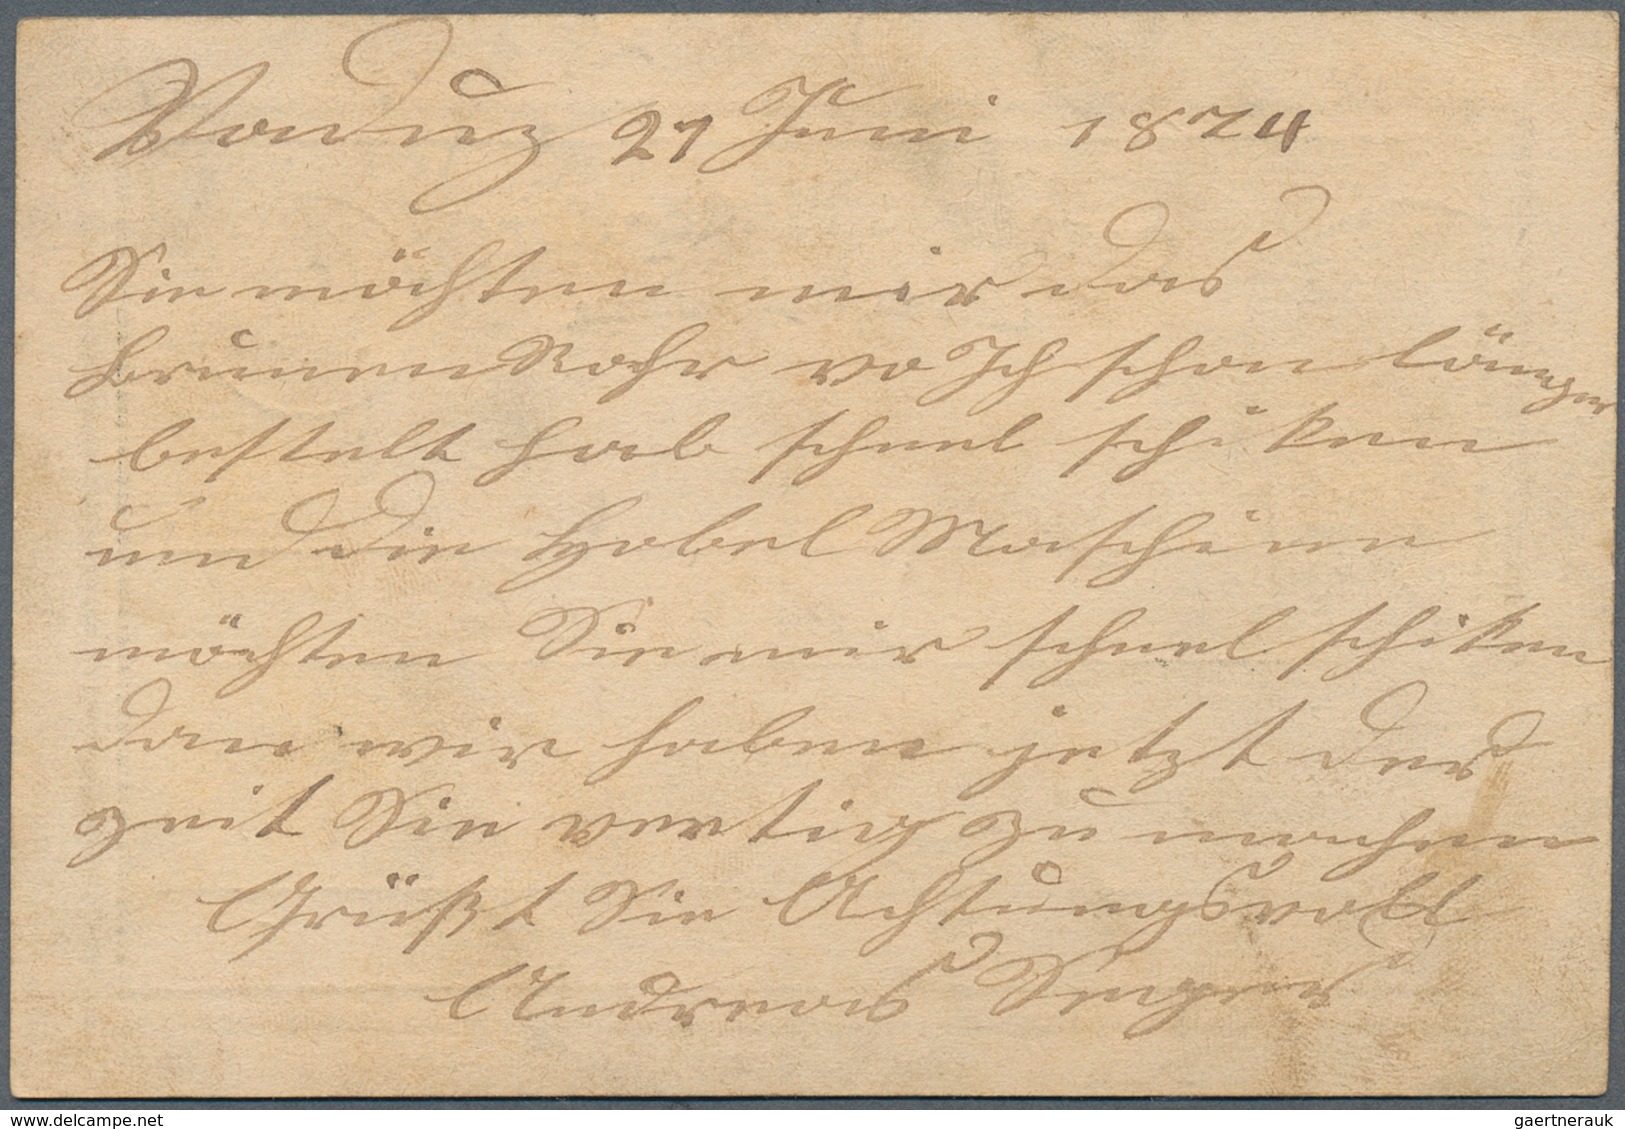 Vaduz 27 Juni 1874
Sie möchten mir das
Brunen Rohr wo Ich schon länger
bestelt hab schnel schiken
und die Hobel Maschine
möchten Sie mir schnel schiken
dan wir haben jetzt der
zeit Sie vertig zu machen
Grüßt Sie Achtungsvoll
Andreas
www.delcampe.net
gaertnerauk